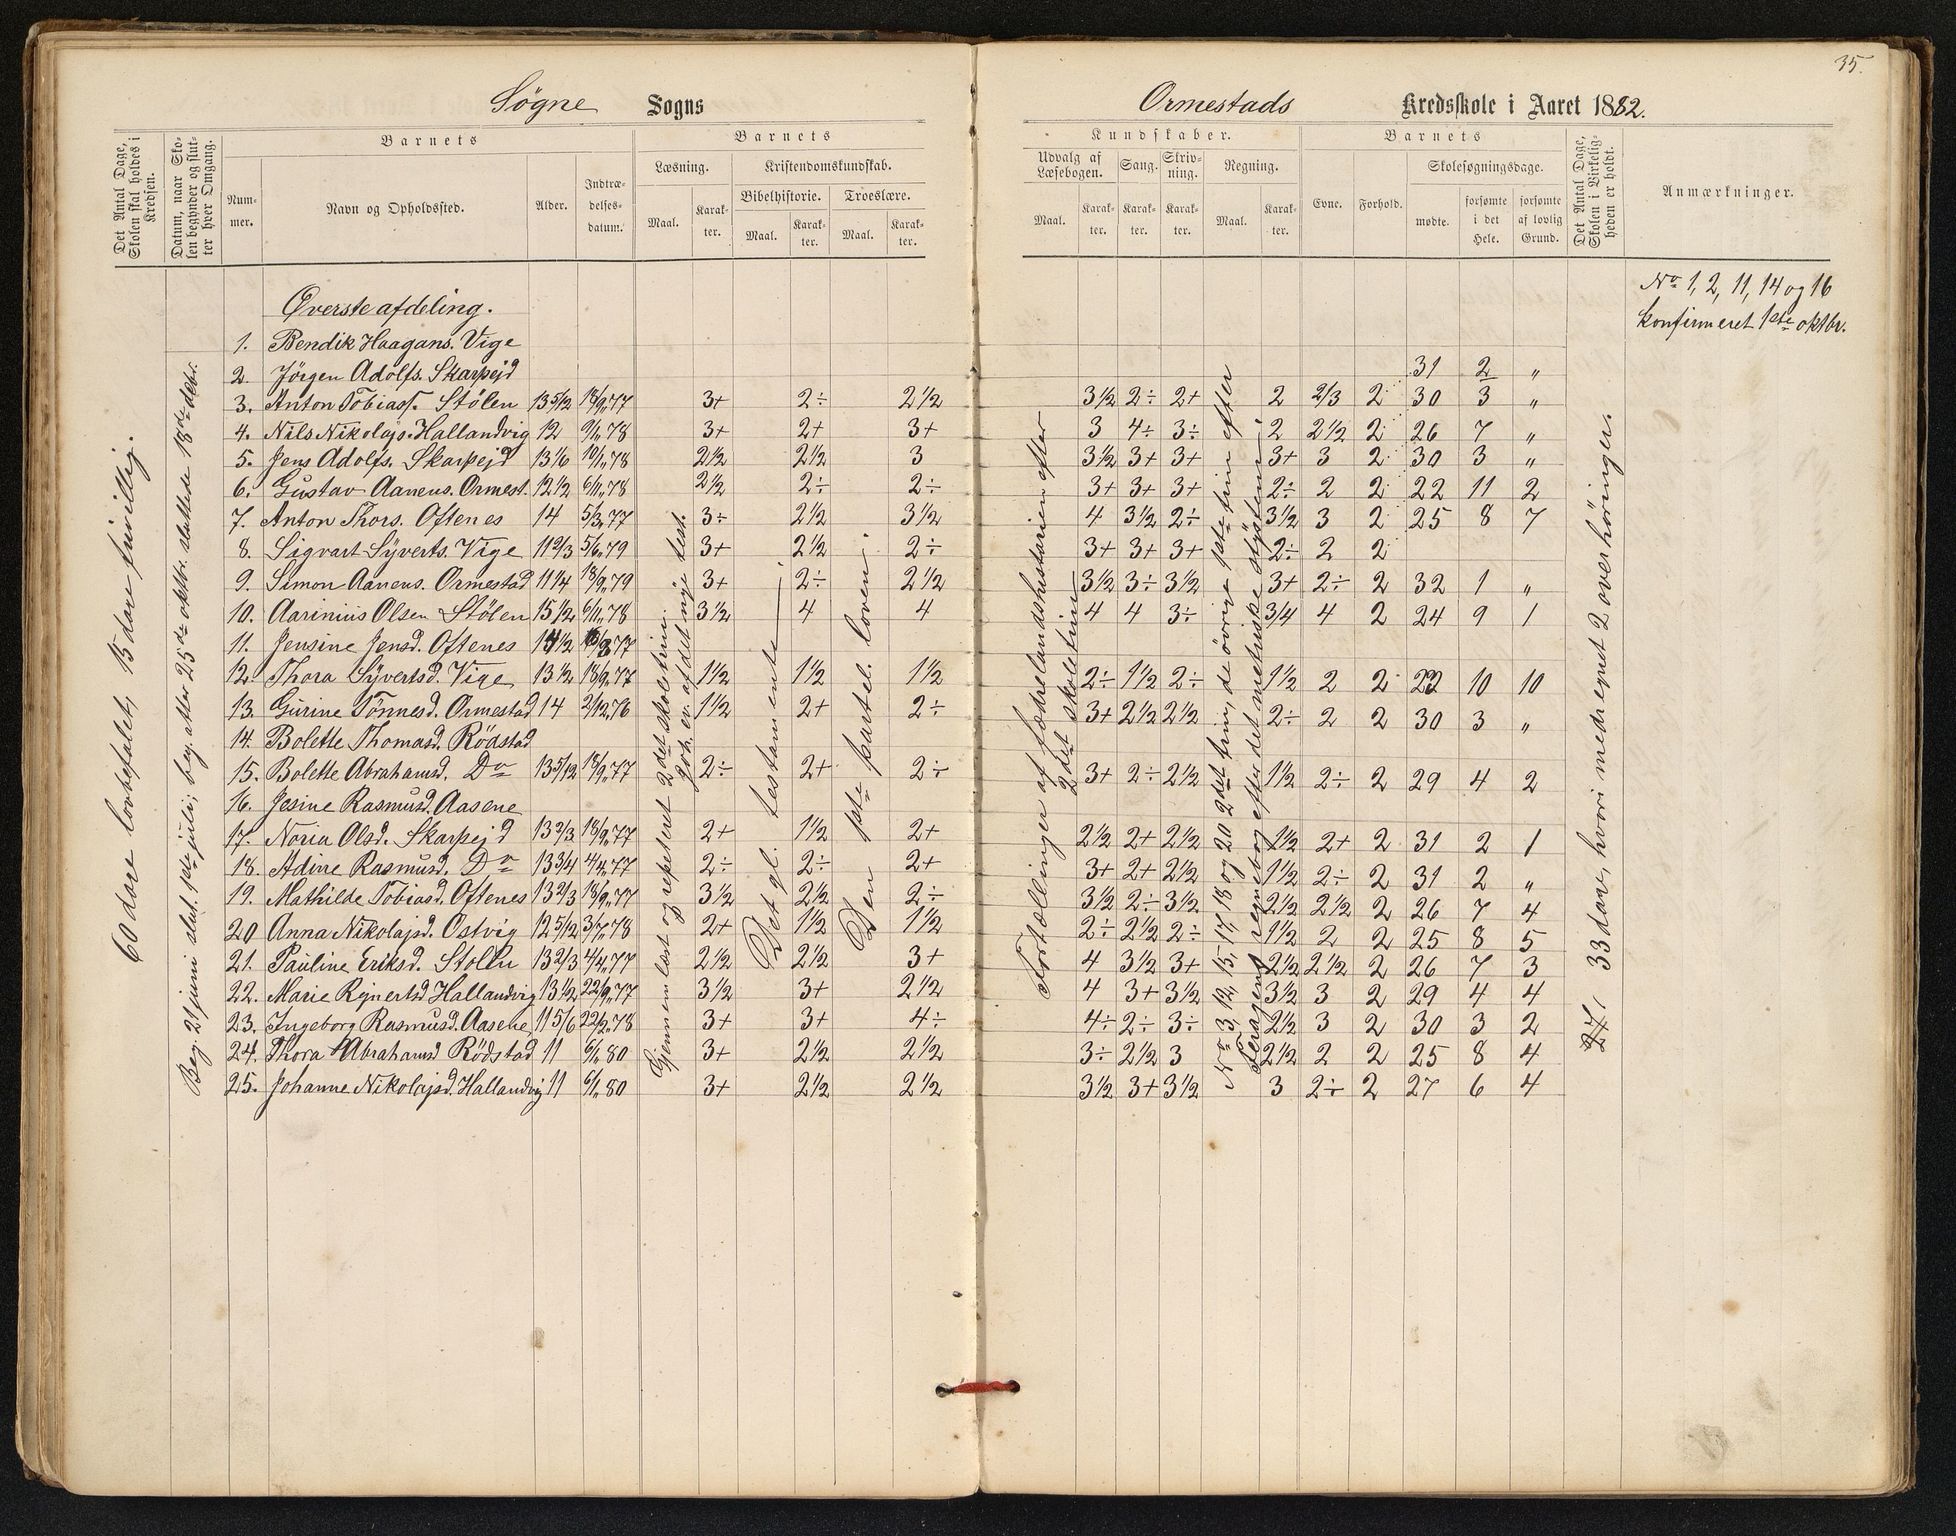 35.
Søgne Sogns
Ormestads Kredsskole i Aaret 1882.
Det Antal Dage, Skolen skal holdes i Kredsen.
Datum, naar Skolen begynder og slutter hver Omgang.
Barnets
Nummer.
Navn og Opholdssted.
Alder.
Indtrædelsesdatum.
Barnets
Læsning.
Maal.
Karakter.
Kristendomskundskab.
Bibelhistorie.
Maal.
Karakter.
Troeslære.
Maal.
Karakter.
Kundskaber.
Udvalg af Læsebogen.
Maal.
Karakter.
Sang.
Karakter.
Skrivning.
Karakter.
Regning.
Maal.
Karakter.
Barnets
Evne.
Forhold.
Skolesøgningsdage.
mødte.
forsømte i det Hele.
forsømte af lovlig Grund.
Det Antal Dage, Skolen i Virkeligheden er holdt.
Anmærkninger.
No 1, 2, 11, 14 og 16
konfirmeret 1ste oktbr.
60 dare lovbefalet, 15 dare frivillig.
Beg. 21 juni slut. 1ste juli; beg. atter 25de oktbr. sluttede 18de decbr.
Øverste afdeling.
1. Bendik Haagans. Vige
2. Jørgen Adolfs. Skarpejd 31 2 „
3. Anton Tobiass. Stølen 13 5/12 18/9 77 3+ 2÷ 2 1/2 3 1/2 2÷ 2+ 2 2/3 2 30 3 „
4. Nils Nikolajs. Hallandvig 12 9/1 78 3+ 2+ 3+ 3 4÷ 3÷ 2 2 1/2 2 26 7 „
5. Jens Adolfs. Skarpejd 13 1/6 10/1 78 2 1/2 2 1/2 3 3 1/2 3+ 3+ 3+ 3 2 30 3 „
6. Gustav Aanens. Ormest. 12 1/2 6/11 78 2 1/2 2÷ 2÷ 3+ 3+ 3+ 2÷ 2 2 22 11 2
7. Anton Thors. Oftenes 14 5/3 77 3÷ 2 1/2 3 1/2 4 3 1/2 2÷ 3 1/2 3 2 25 8 7
8. Sigvart Syverts. Vige 11 2/3 5/6 79 3+ 2 1/2 2÷ 3+ 3+ 3+ 2÷ 2 2
9. Simon Aanens. Ormestad 11 1/4 18/9 79 3+ 2÷ 2 1/2 3 1/2 3÷ 3 1/2 3+ 2÷ 2 32 1 „
10. Aarinius Olsen Stølen 15 1/2 6/11 78 3 1/2 4 4 4 4 3÷ 3/4 4 2 24 9 1
11. Jensine Jensd. Oftenes 14 1/2 77
12. Thora Syvertsd. Vige 13 1/2 18/9 77 1 1/2 1 1/2 1 1/2 2÷ 1 1/2 2÷ 1 1/2 2 2 23 10 10
13. Gurine Tønnesd. Ormestad 14 2/12 76 1 1/2 2+ 2÷ 3+ 2 1/2 2 1/2 2÷ 2 2 30 3 „
14. Bolette Thomasd. Rødstad
15. Bolette Abrahamsd. Do 13 5/12 18/9 77 2÷ 2+ 2÷ 3+ 2÷ 2 1/2 1 1/2 2÷ 2 29 4 2
16. Jesine Rasmusd. Aasene
17. Noria Olsd. Skarpejd 13 2/3 18/9 77 2+ 1 1/2 2+ 2 1/2 2+ 2 1/2 1 1/2 2+ 2 31 2 1
18. Adine Rasmusd. Do 13 3/4 4/4 77 2÷ 2÷ 2+ 3+ 2+ 2 1/2 1 1/2 2÷ 2 31 2 „
19. Mathilde Tobiasd. Oftenes 13 2/3 18/9 77 3 1/2 2 1/2 2÷ 3 1/2 2÷ 3 1/2 2 1/2 2 1/2 2 26 7 4
20 Anna Nikolajsd. Østvig 12 5/12 3/7 78 2+ 1 1/2 1 1/2 2÷ 2 1/2 2÷ 1 1/2 2 2 25 8 5
21. Pauline Eriksd. Stølen 13 2/3 4/4 77 2 1/2 2 1/2 3+ 4 3 1/2 3+ 2 1/2 2 1/2 2 26 7 3
22. Marie Rejnertsd Hallandvig 13 1/2 22/9 77 3 1/2 3+ 2 1/2 4 3+ 3 1/2 3 1/2 3 2 29 4 4
23. Ingeborg Rasmusd. Aasene 11 5/6 22/2 78 3+ 3+ 4÷ 4÷ 2÷ 3÷ 2 1/2 3 2 30 3 2
24. Thora Abrahamsd Rødstad 11 6/1 80 3+ 2 1/2 2 1/2 3÷ 2 1/2 3 2 1/2 2 2 25 8 4
25. Johanne Nikolajsd. Hallandvig 11 6/1 80 3+ 2 1/2 2 1/2 3 1/2 3+ 3 1/2 3 2÷ 2 27 6 4
Gjennem læst og repeteret 2det skoletrin.
Joh. ev. af det nye test.
Det gl. testamente.
Den 1ste partel. loven.
Fortællinger af fædrelandshistorien efter
2det skoletrin
No 3, 12, 15, 17, 18 og 20 2det trin, de øvrige 1ste trin efter
regnebog efter det metriske system.
33 dare, hvori medregnet 2 overhøringer.